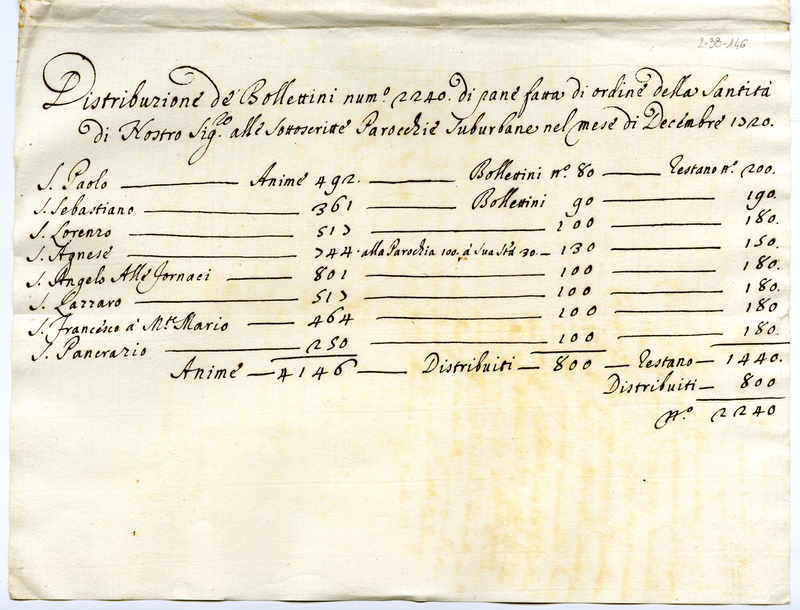 2-38-146
Distribuzione de Bollettini num.º 2240. di pane fatta di ordine della Santità
di Nostro Sig.re alle sottoscritte Parocchie Suburbane nel mese di Decembre 1720.
S. Paolo — Anime 492. — Bollettini nº. 80 — Restano nº. 200.
S. Sebastiano — 361 — Bollettini 90 — 190.
S. Lorenzo — 517 — 100 — 180.
S. Agnese — 744. alla Parochia 100. à Sua Stà 30 — 130 — 150.
S. Angelo Alle Fornaci — 801 — 100 — 180.
S. Lazzaro — 517 — 100 — 180.
S. Francesco à Mte. Mario — 464 — 100 — 180
S. Pancrazio — 250 — 100 — 180.
Anime — 4146 — Distribuiti — 800 — Restano — 1440.
Distribuiti — 800
Nº. 2240